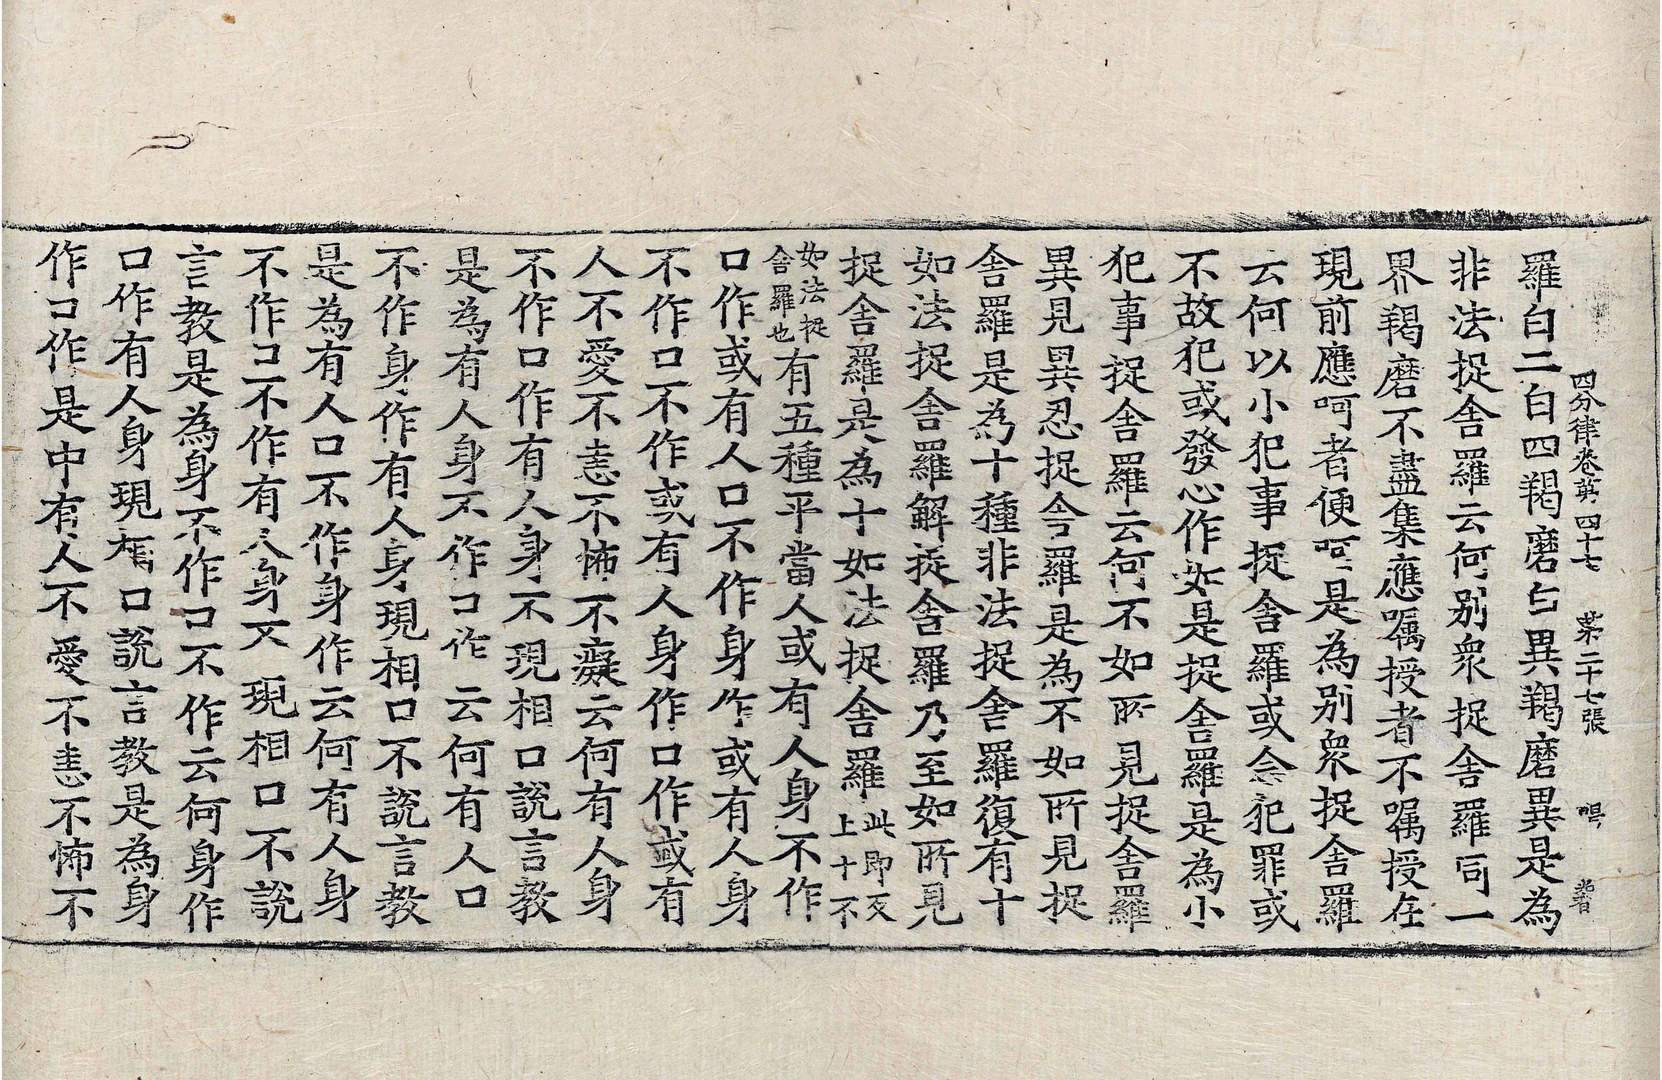 四分律卷第四十七 第二十七張
羅白二白四羯磨白異羯磨異是為
非法捉舍羅云何別衆捉舍羅同一
界羯磨不盡集應囑授者不囑授在
現前應呵者便呵是為別衆捉舍羅
云何以小犯事捉舍羅或念犯罪或
不故犯或發心作如是捉舍羅是為小
犯事捉舍羅云何不如所見捉舍羅
異見異忍捉舍羅是為不如所見捉
舍羅是為十種非法捉舍羅復有十
如法捉舍羅解捉舍羅乃至如所見
捉舍羅是為十如法捉舍羅此即反上十不
如法捉舍羅也有五種平當人或有人身不作
口作或有人口不作身作或有人身
不作口不作或有人身作口作或有
人不愛不恚不怖不癡云何有人身
不作口作有人身不現相口說言教
是為有人身不作口作云何有人口
不作身作有人身現相口不說言教
是為有人口不作身作云何有人身
不作口不作有人身不現相口不說
言教是為身不作口不作云何身作
口作有人身現相口說言教是為身
作口作是中有人不愛不恚不怖不